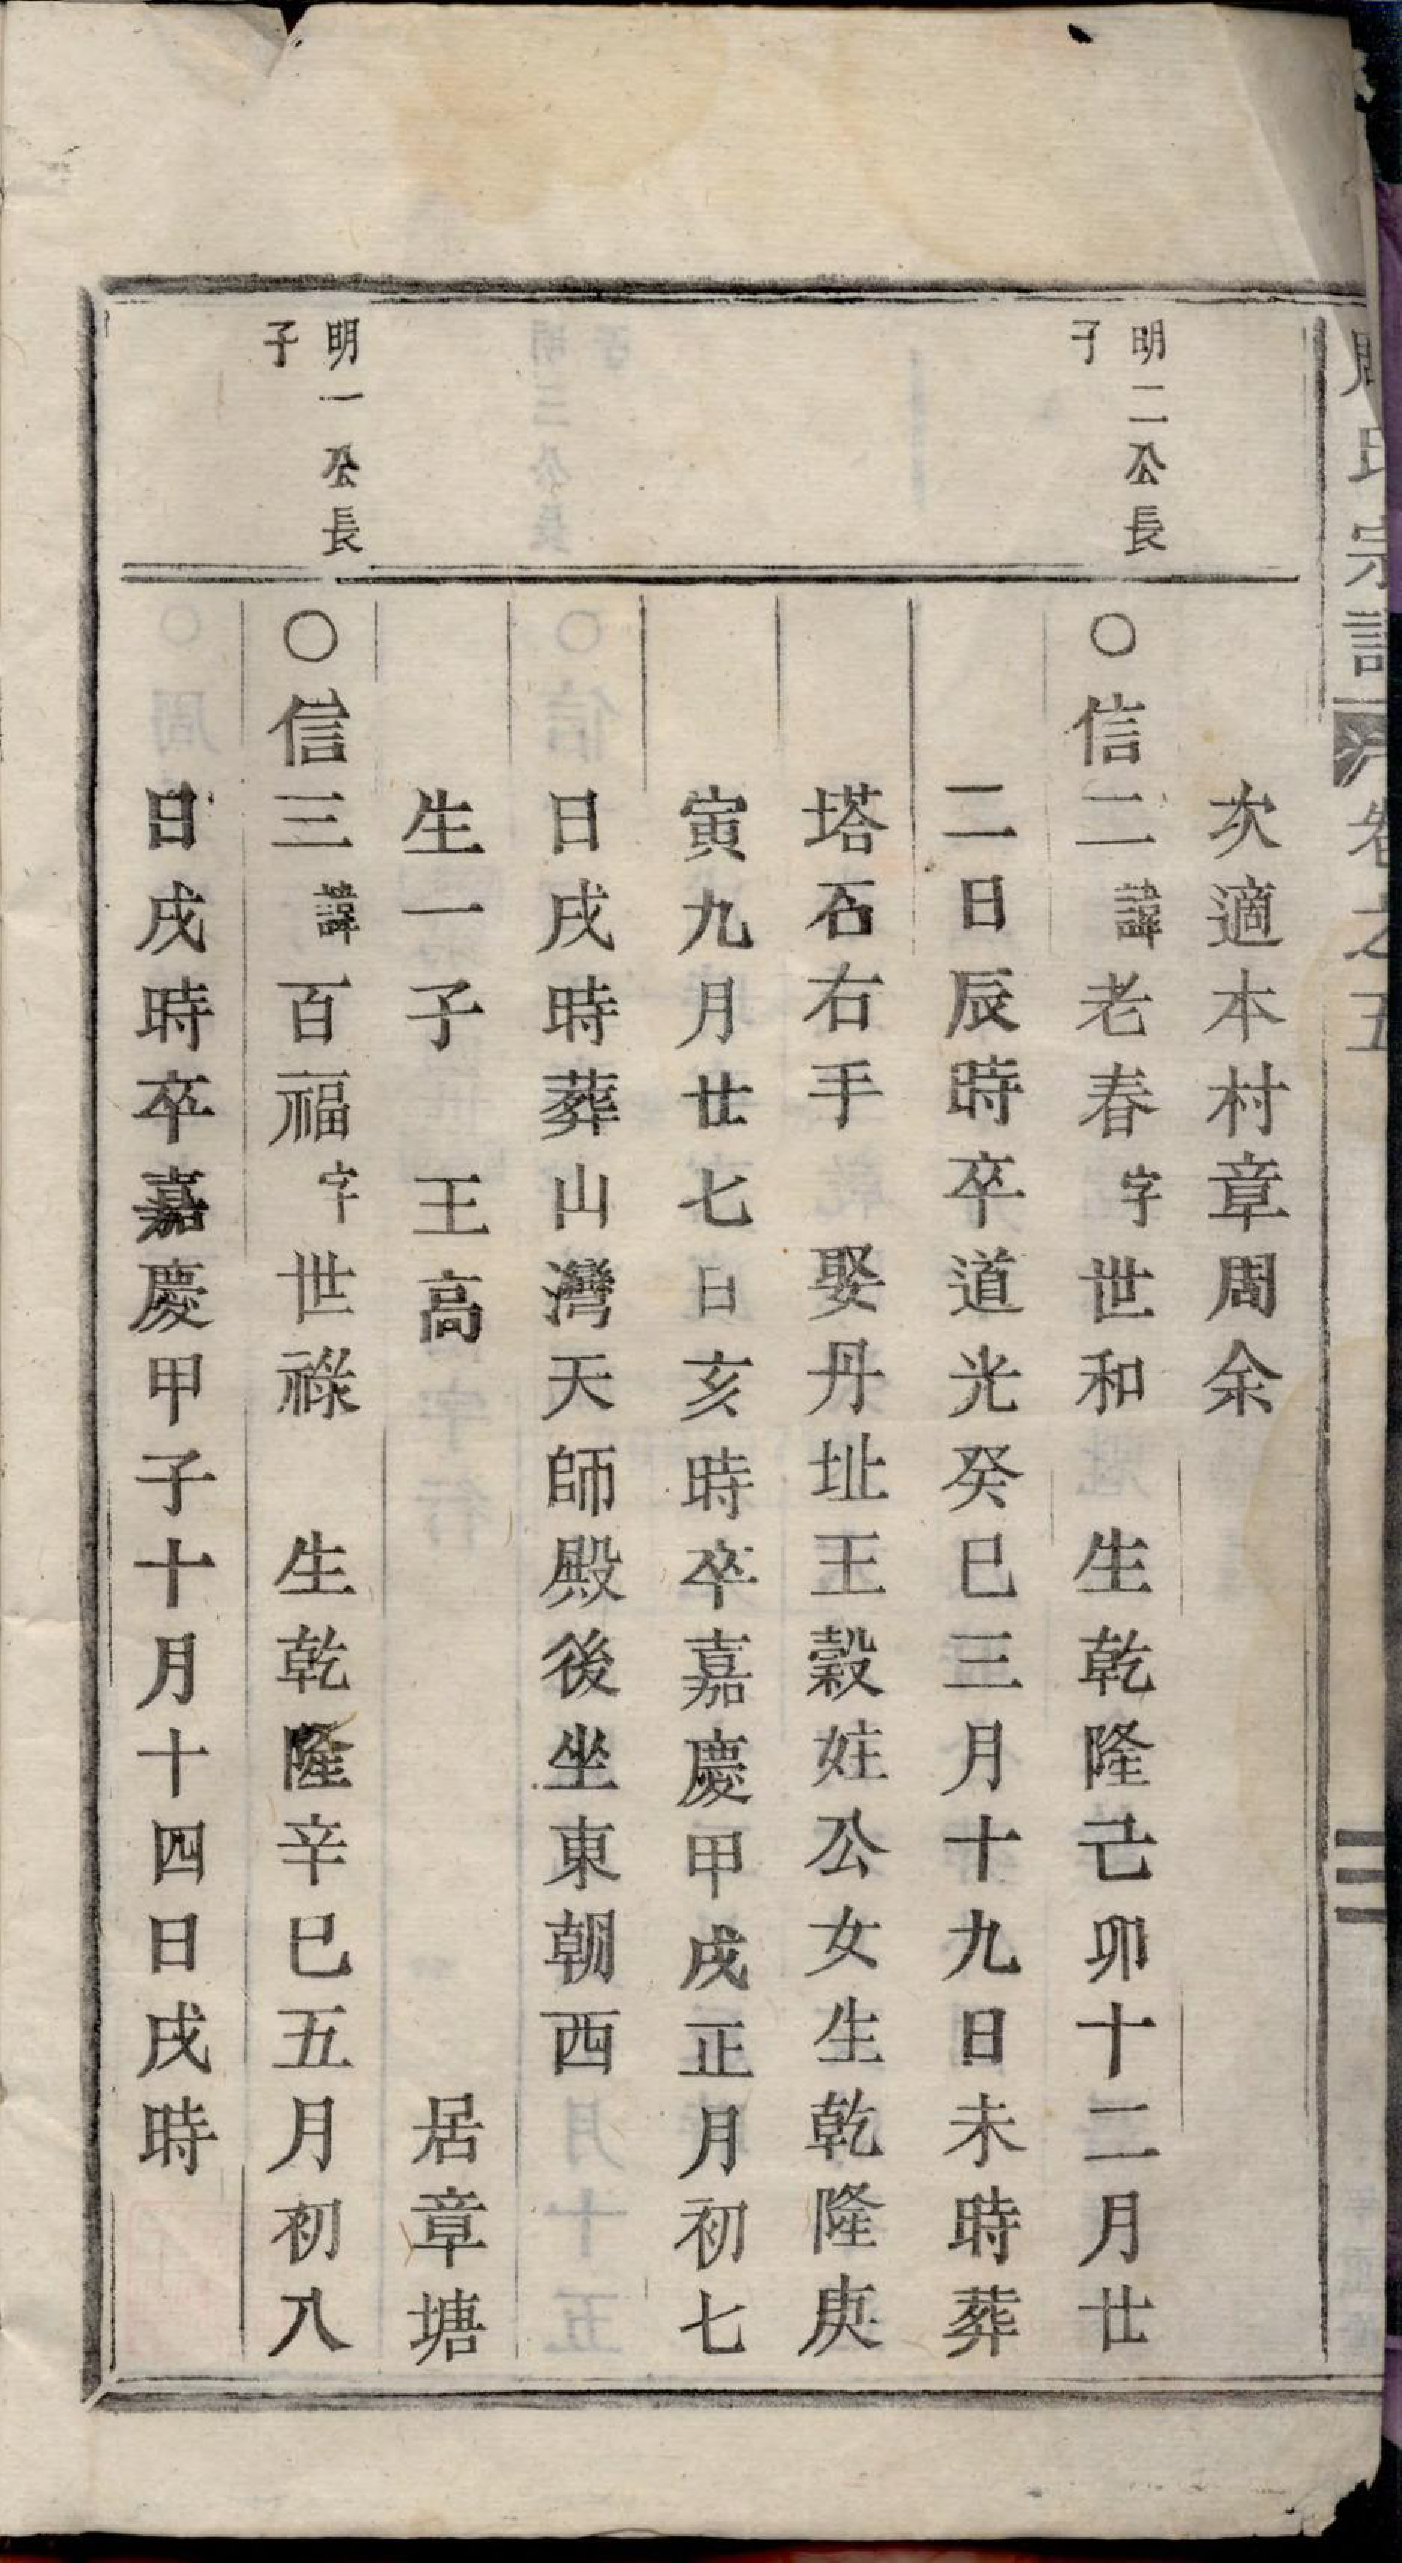 宗
卷之五
次適本村章周余
明二公長
子
○信二諱老春字世和　生乾隆己卯十二月廿
二日辰時卒道光癸巳三月十九日未時葬
塔石右手　娶丹址王穀妵公女生乾隆庚
寅九月廿七日亥時卒嘉慶甲戌正月初七
日戌時葬山灣天師殿後坐東朝西
生一子　王高　居章塘
明一公長
子
○信三諱百福字世祿　生乾隆辛巳五月初八
日戌時卒嘉慶甲子十月十四日戌時